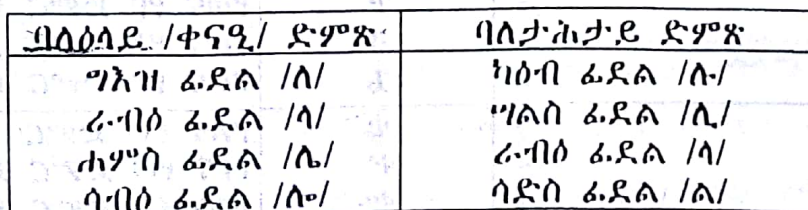 ባለዕላይ /ቀናዒ/ ድምጽ	ባለታሕታይ ድምጽ
ግእዝ ፊደል /ለ/	ካዕብ ፊደል /ሉ/
ራብዕ ፊደል /ላ/	ሣልስ ፊደል /ሊ/
ሐምስ ፊደል /ሌ/	ራብዕ ፊደል /ላ/
ሳብዕ ፊደል /ሎ/	ሳድስ ፊደል /ል/